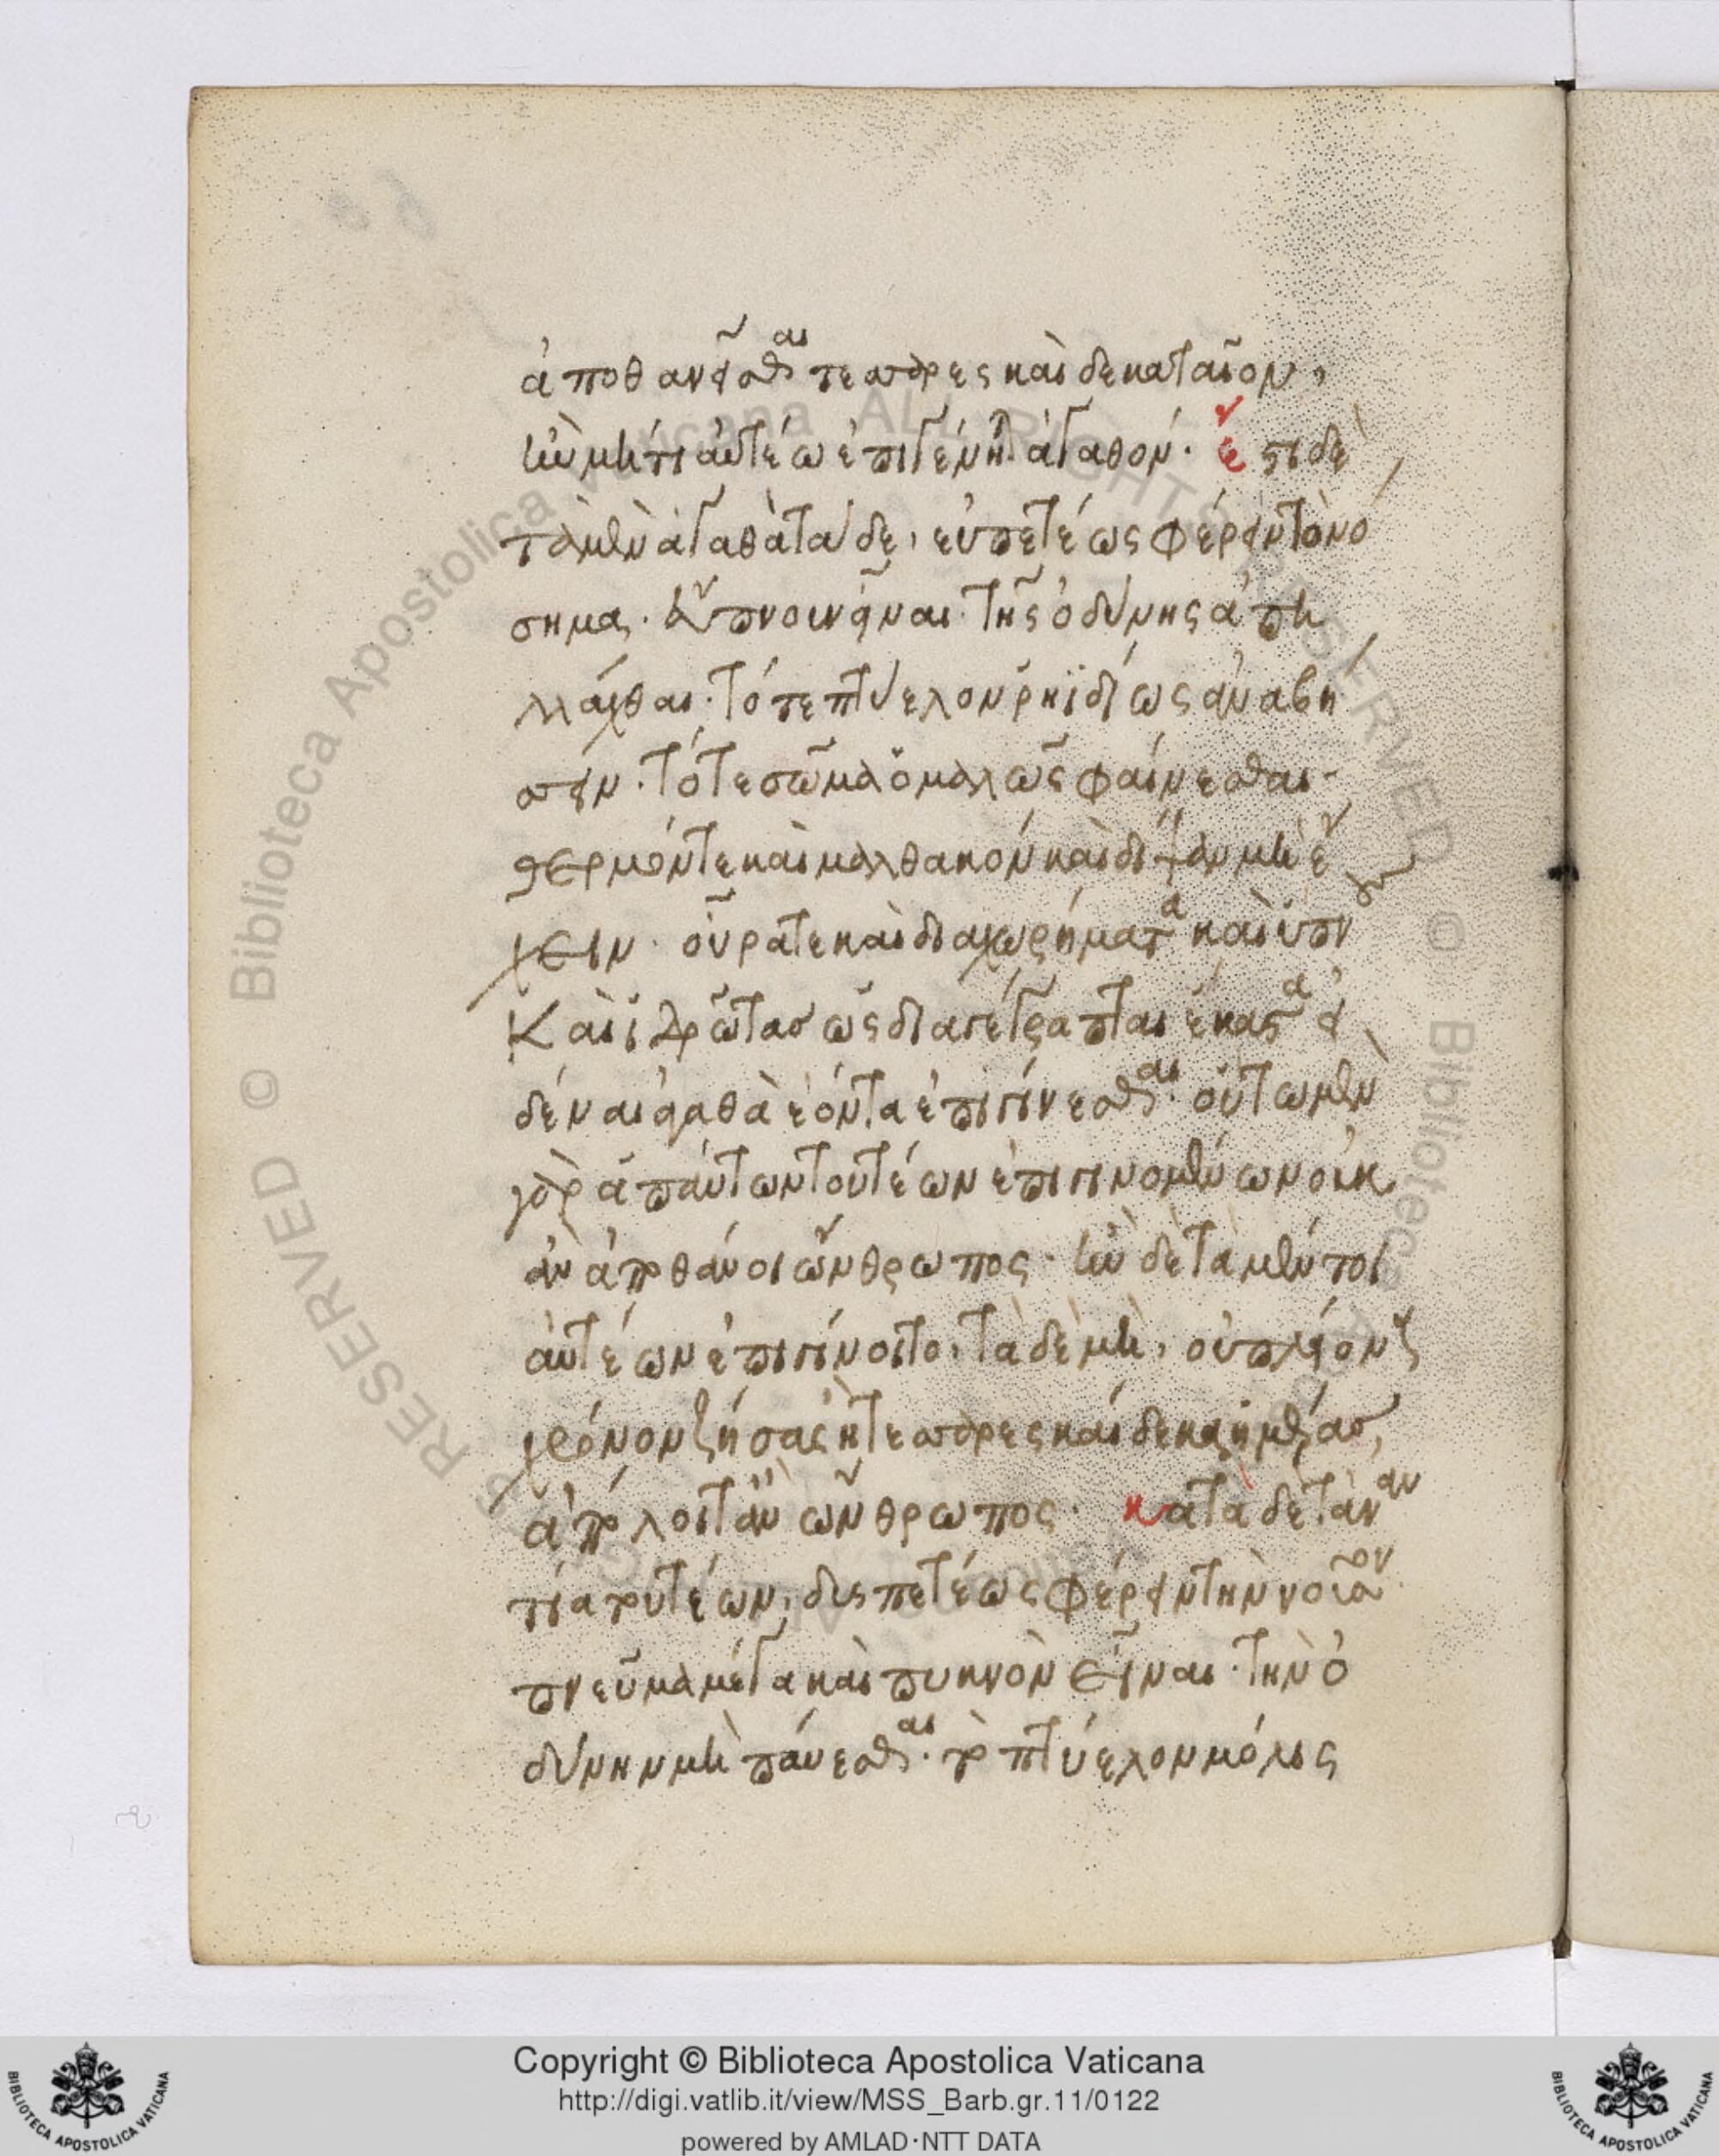 ἀποθανεῖσθαι τεσσαρεςκαιδεκαταῖον,
ἢν μή τι αὐτέω ἐπιγένηται ἀγαθόν. ἔστι δὲ
τὰ μὲν ἀγαθὰ τάδε, εὐπετέως φέρειν τὸ νό
σημα. εὔπνοον εἶναι. τῆς ὀδύνης ἀπη
λλάχθαι. τό τε πτύελον ῥηϊδίως ἀναβή
σσειν. τό τε σῶμα ὁμαλῶς φαίνεσθαι
θερμόν τε καὶ μαλθακὸν καὶ δίψαν μὴ ἔ
χειν. οὖρά τε καὶ διαχωρήματα καὶ ὕπνους
καὶ ἱδρῶτας ὡς διαγέγραπται ἕκαστα εἰ
δέναι ἀγαθὰ ἐόντα ἐπιγίνεσθαι. οὕτω μὲν
γὰρ ἁπάντων τουτέων ἐπιγινομένων οὐκ
ἂν ἀποθάνοι ὤνθρωπος. ἢν δὲ τὰ μέν τοι
αὐτέων ἐπιγίνοιτο, τὰ δὲ μὴ, οὐ πλείονα
χρόνον ζήσας ἢ τεσσαρεσκαίδεκα ἡμέρας,
ἀπόλοιτ' ἂν ὤνθρωπος. κατὰ δὲ τἀναν
τία τουτέων, δυσπετέως φέρειν τὴν νοῦσον
πνεῦμα μέγα καὶ πυκνὸν εἶναι. τὴν ὀ
δύνην μὴ παύεσθαι. τὸ πτύελον μόλις
Copyright © Biblioteca Apostolica Vaticana
http://digi.vatlib.it/view/MSS_Barb.gr.11/0122
powered by AMLAD·NTT DATA